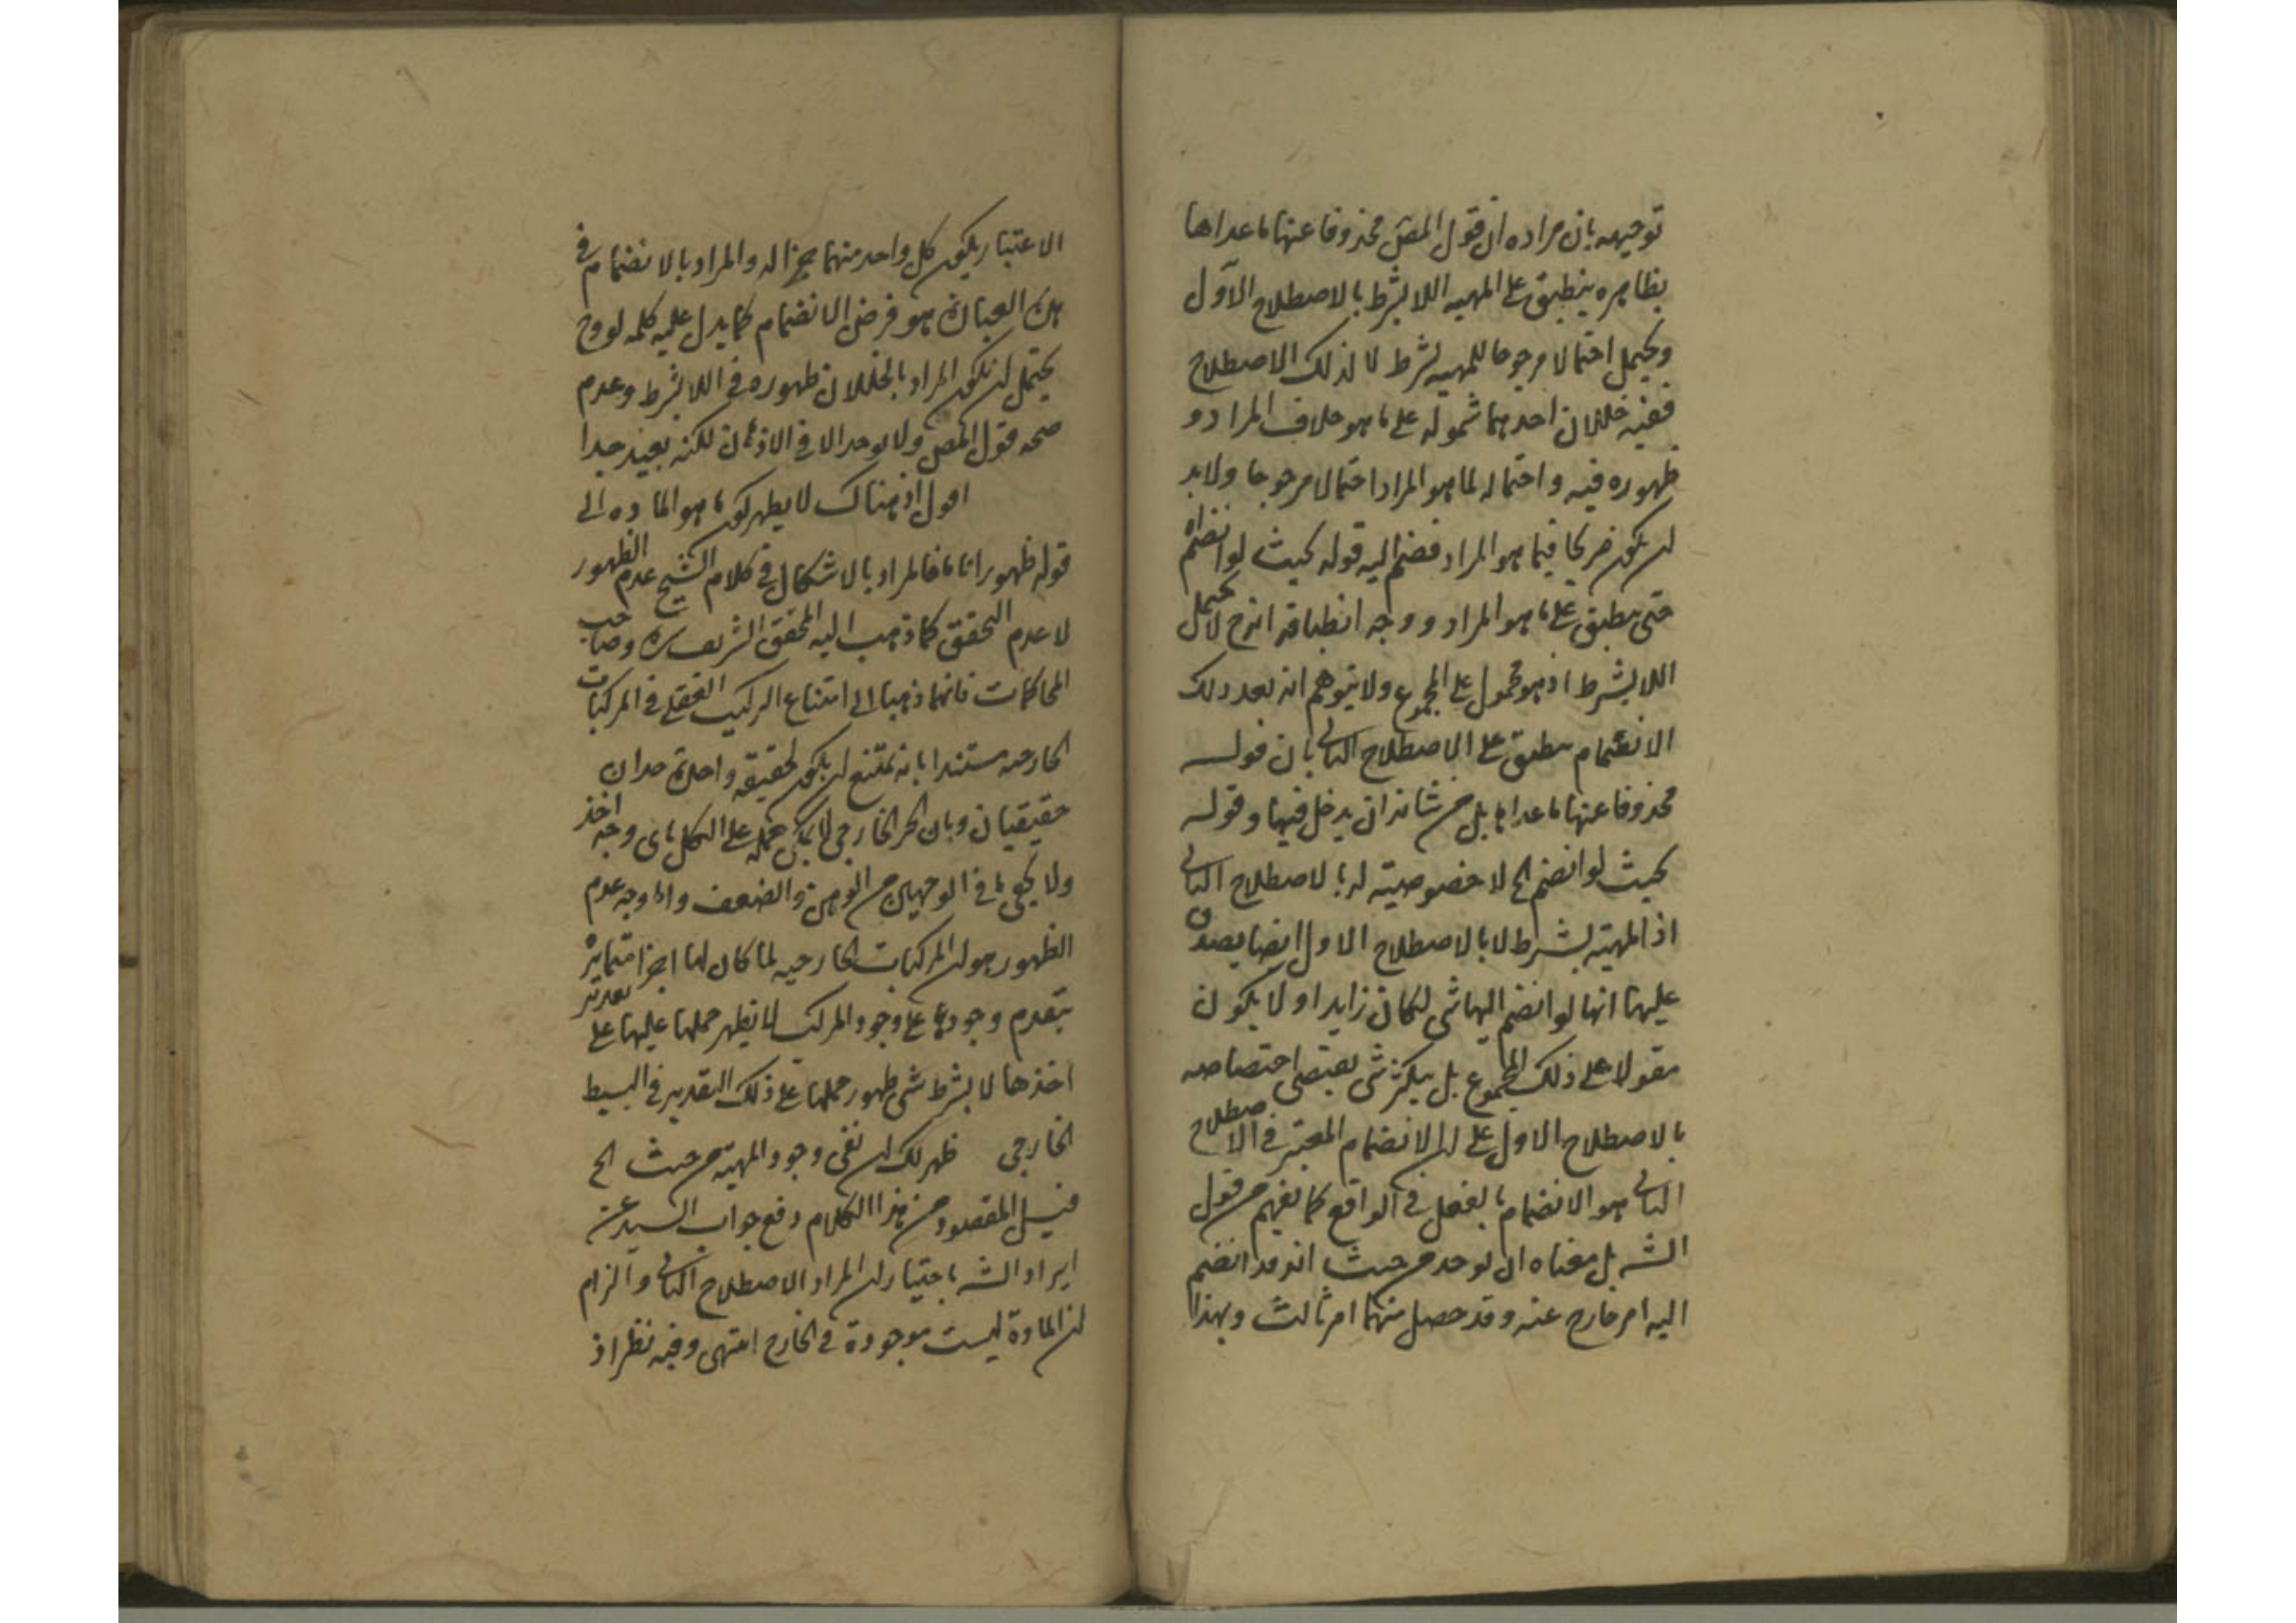 توجيهه بان مراده ان قول المصّ محذوفا عنها ما عداها
بظاهره ينطبق على المهيه اللا بشرط بالاصطلاح الاول
ويحتمل احتمالا مرجوحا للمهيه بشرط لا لذلك الاصطلاح
ففيه خللان احدهما شموله على ما هو خلاف المراد و
ظهوره فيه و احتماله لما هو المراد احتمالا مرجوحا ولا بد
ان يكون صريحا فيما هو المراد فضم اليه قوله بحيث لو انضم آه
حتى ينطبق على ما هو المراد و وجه انطباقه انه ح لا يحتمل
اللا بشرط اذ هو محمول على المجموع ولا يتوهم انه بعد ذلك
الانضمام ينطبق على الاصطلاح الثانى بان قوله
محذوفا عنها ما عداها بل من شانه ان يدخل فيها وقوله
بحيث لو انضم الخ لا خصوصيته له بالاصطلاح الثانى
اذ المهية بشرط لا بالاصطلاح الاول ايضا يصدق
عليها انها لو انضم اليها شى لكان زايدا و لا يكون
مقولا على ذلك المجموع بل يكثر شى يقتضى اختصاصه
بالاصطلاح الاول على ان الانضمام المعتبر فى الاصطلاح
الثانى هو الانضمام بالفعل فى الواقع كما يفهم من قول
الشه بل معناه ان يوجد من حيث انه قد انضم
اليه امر خارج عنه و قد حصل منهما امر ثالث وبهذا
الاعتبار يكون كل واحد منهما جزا له والمراد بالانضمام فى
هذه العبارة هو فرض الانضمام كما يدل عليه كلمه لو وح
يحتمل ان يكون المراد بالخللان ظهوره فى اللا بشرط وعدم
صحه قول المصّ ولا يوجد الا فى الاذهان لكنه بعيد جدا
اقول اذ هناك لا يظهر كون ما هو الماده الى
قوله ظهورا تاما فالمراد بالاشكال فى كلام الشيخ عدم الظهور
لا عدم التحقق كما ذهب اليه المحقق الشريف ره وصاحب
المحاكمات فانهما ذهبا الى امتناع التركيب العقلى فى المركبات
الخارجه مستندا بانه يمتنع ان يكون لحقيقه واحدة حدان
حقيقيان وبان الجزء الخارجى لا يمكن حمله على الكل باى وجه اخذ
ولا يخفى ما فى الوجهين من الوهن والضعف واما وجه عدم
الظهور هو ان المركبات الخارجيه لما كان لها اجزا متمايزة
يتقدم وجودها على وجود المركب لا يظهر حملها عليها على
اخذها لا بشرط شى ظهور حملها على ذلك التقدير فى البسيط
الخارجى ظهر لك ان نفى وجود المهية من حيث الخ
قيل المقصود من هذا الكلام دفع جواب السيد عن
ايراد الشه باختيار ان المراد الاصطلاح الثانى والزام
ان المادة ليست موجودة فى الخارج انتهى وفيه نظر اذ